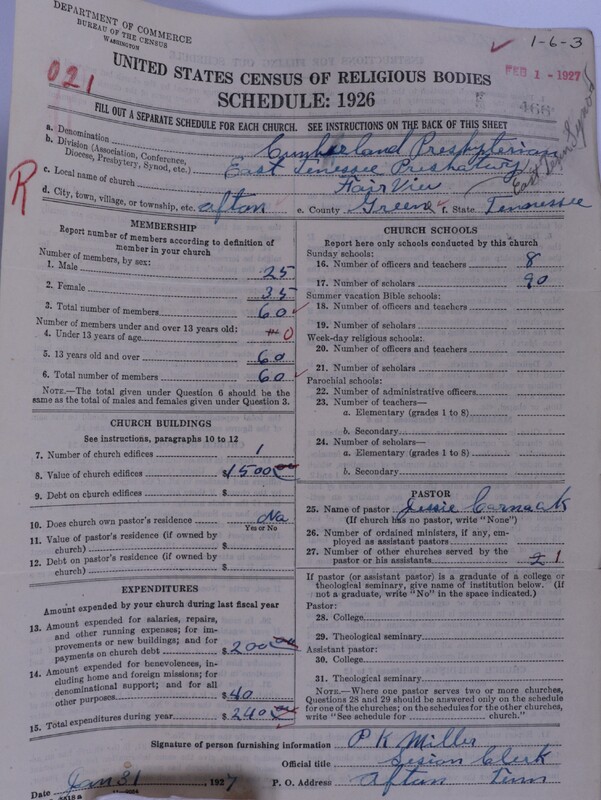 DEPARTMENT OF COMMERCE
BUREAU OF THE CENSUS
WASHINGTON
1-6-3
FEB 1 - 1927
021
UNITED STATES CENSUS OF RELIGIOUS BODIES
SCHEDULE: 1926
FILL OUT A SEPARATE SCHEDULE FOR EACH CHURCH. SEE INSTRUCTIONS ON THE BACK OF THIS SHEET
a. Denomination Cumberland Presbyterian
b. Division (Association, Conference, Diocese, Presbytery, Synod, etc.) East Tenessee Presbatury
East Tenn Synod
c. Local name of church Fair View
R
d. City, town, village, or township, etc. afton e. County Greene f. State Tennessee
MEMBERSHIP
Report number of members according to definition of
member in your church
Number of members, by sex:
1. Male 25
2. Female 35
3. Total number of members 60
Number of members under and over 13 years old:
4. Under 13 years of age 0
5. 13 years old and over 60
6. Total number of members 60
NOTE.—The total given under Question 6 should be the
same as the total of males and females given under Question 3.
CHURCH BUILDINGS
See instructions, paragraphs 10 to 12
7. Number of church edifices 1
8. Value of church edifices $1500 00
9. Debt on church edifices $
10. Does church own pastor's residence No
Yes or No
11. Value of pastor's residence (if owned by
church) $
12. Debt on pastor's residence (if owned by
church) $
EXPENDITURES
Amount expended by your church during last fiscal year
13. Amount expended for salaries, repairs,
and other running expenses; for im-
provements or new buildings; and for
payments on church debt $200 00
14. Amount expended for benevolences, in-
cluding home and foreign missions; for
denominational support; and for all
other purposes $40
15. Total expenditures during year $240 00
CHURCH SCHOOLS
Report here only schools conducted by this church
Sunday schools:
16. Number of officers and teachers 8
17. Number of scholars 90
Summer vacation Bible schools:
18. Number of officers and teachers
19. Number of scholars
Week-day religious schools:
20. Number of officers and teachers
21. Number of scholars
Parochial schools:
22. Number of administrative officers
23. Number of teachers—
a. Elementary (grades 1 to 8)
b. Secondary
24. Number of scholars—
a. Elementary (grades 1 to 8)
b. Secondary
PASTOR
25. Name of pastor Jessie Carmack
(If church has no pastor, write "None")
26. Number of ordained ministers, if any, em-
ployed as assistant pastors
27. Number of other churches served by the
pastor or his assistants 1
If pastor (or assistant pastor) is a graduate of a college or
theological seminary, give name of institution below. (If
not a graduate, write "No" in the space indicated.)
Pastor:
28. College
29. Theological seminary
Assistant pastor:
30. College
31. Theological seminary
NOTE.—Where one pastor serves two or more churches,
Questions 28 and 29 should be answered only on the schedule
for one of the churches; on the schedules for the other churches,
write "See schedule for church."
Signature of person furnishing information P K Miller
Official title Sesion Clerk
Date Jan 31, 1927 P. O. Address Afton Tenn